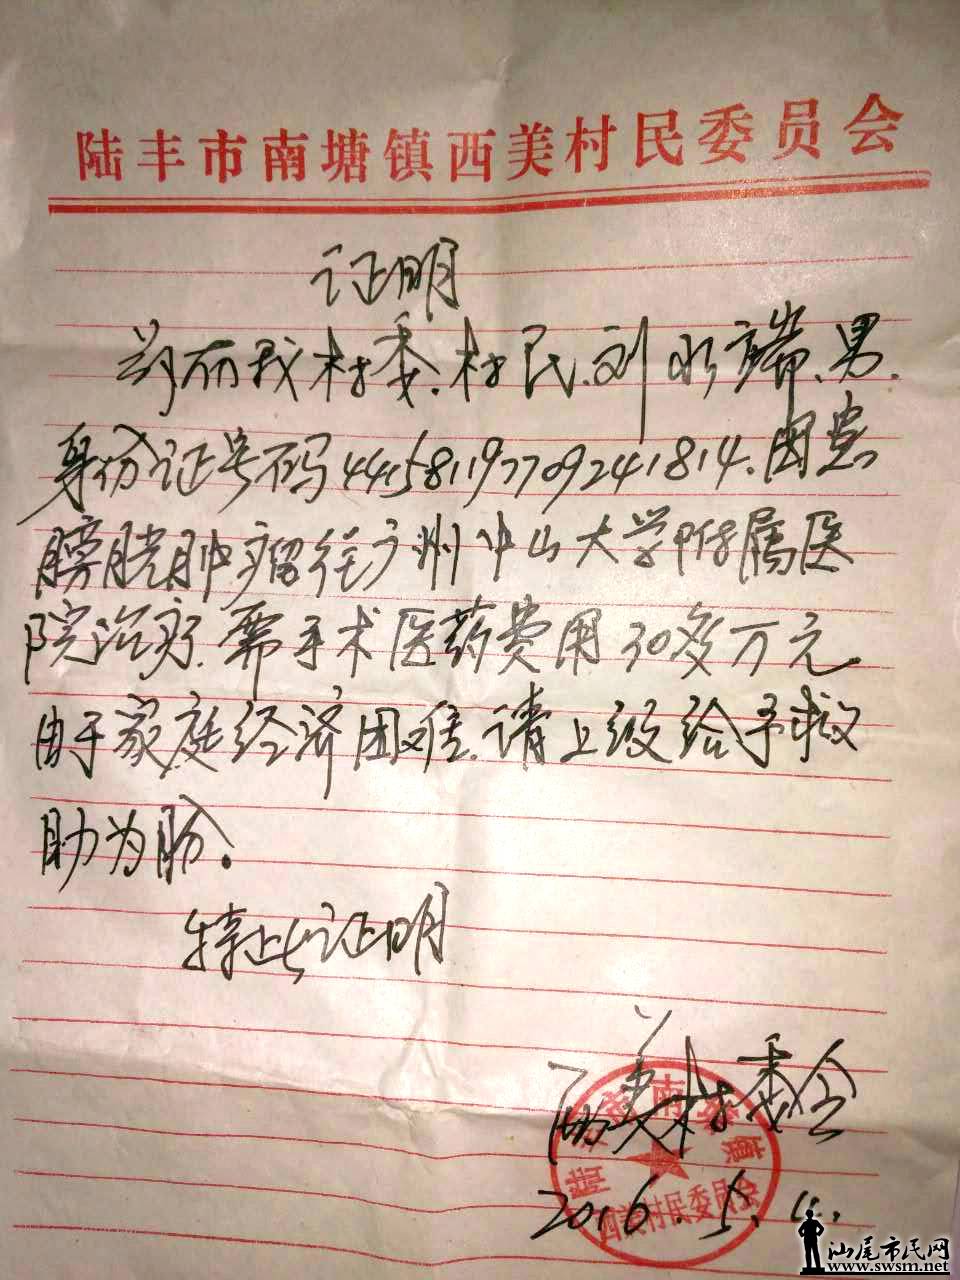 陆丰市南塘镇西美村民委员会
证明
兹有我村委.村民.刘水端、男.
身份证号码441581197709241814.因患
膀胱肿瘤往广州中山大学附属医
院治疗.需手术医药费用30多万元
由于家庭经济困难.请上级给予救
助为盼.
特此证明
西美村委会
西美村民委员会
2016.5.
汕尾市民网
www.swsm.net